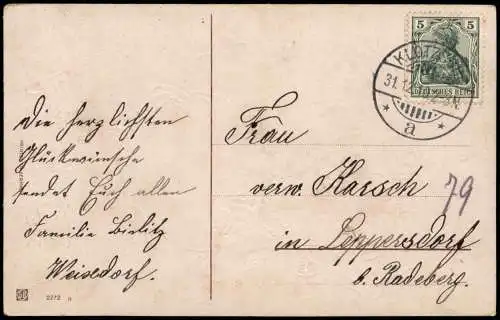 5 5
DEUTSCHES REICH
KLOTZSCHE
31.12.
a
Die herzlichsten
Glückwünsche
sendet Euch allen
Familie Bielitz
Weixdorf.
Frau
verw. Karsch
in Leppersdorf
b. Radeberg.
79
2272